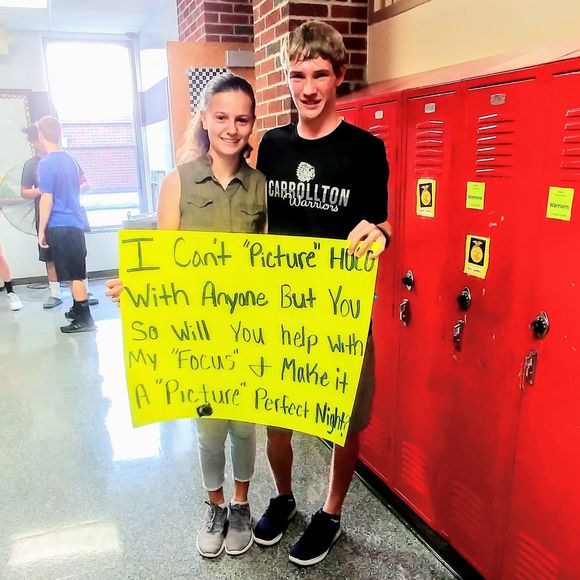 CARROLLTON
Warriors
Warriors
Warriors
I Can't "Picture" HOCO
With Anyone But You
So Will You help With
My "Focus" & Make it
A "Picture" Perfect Night?